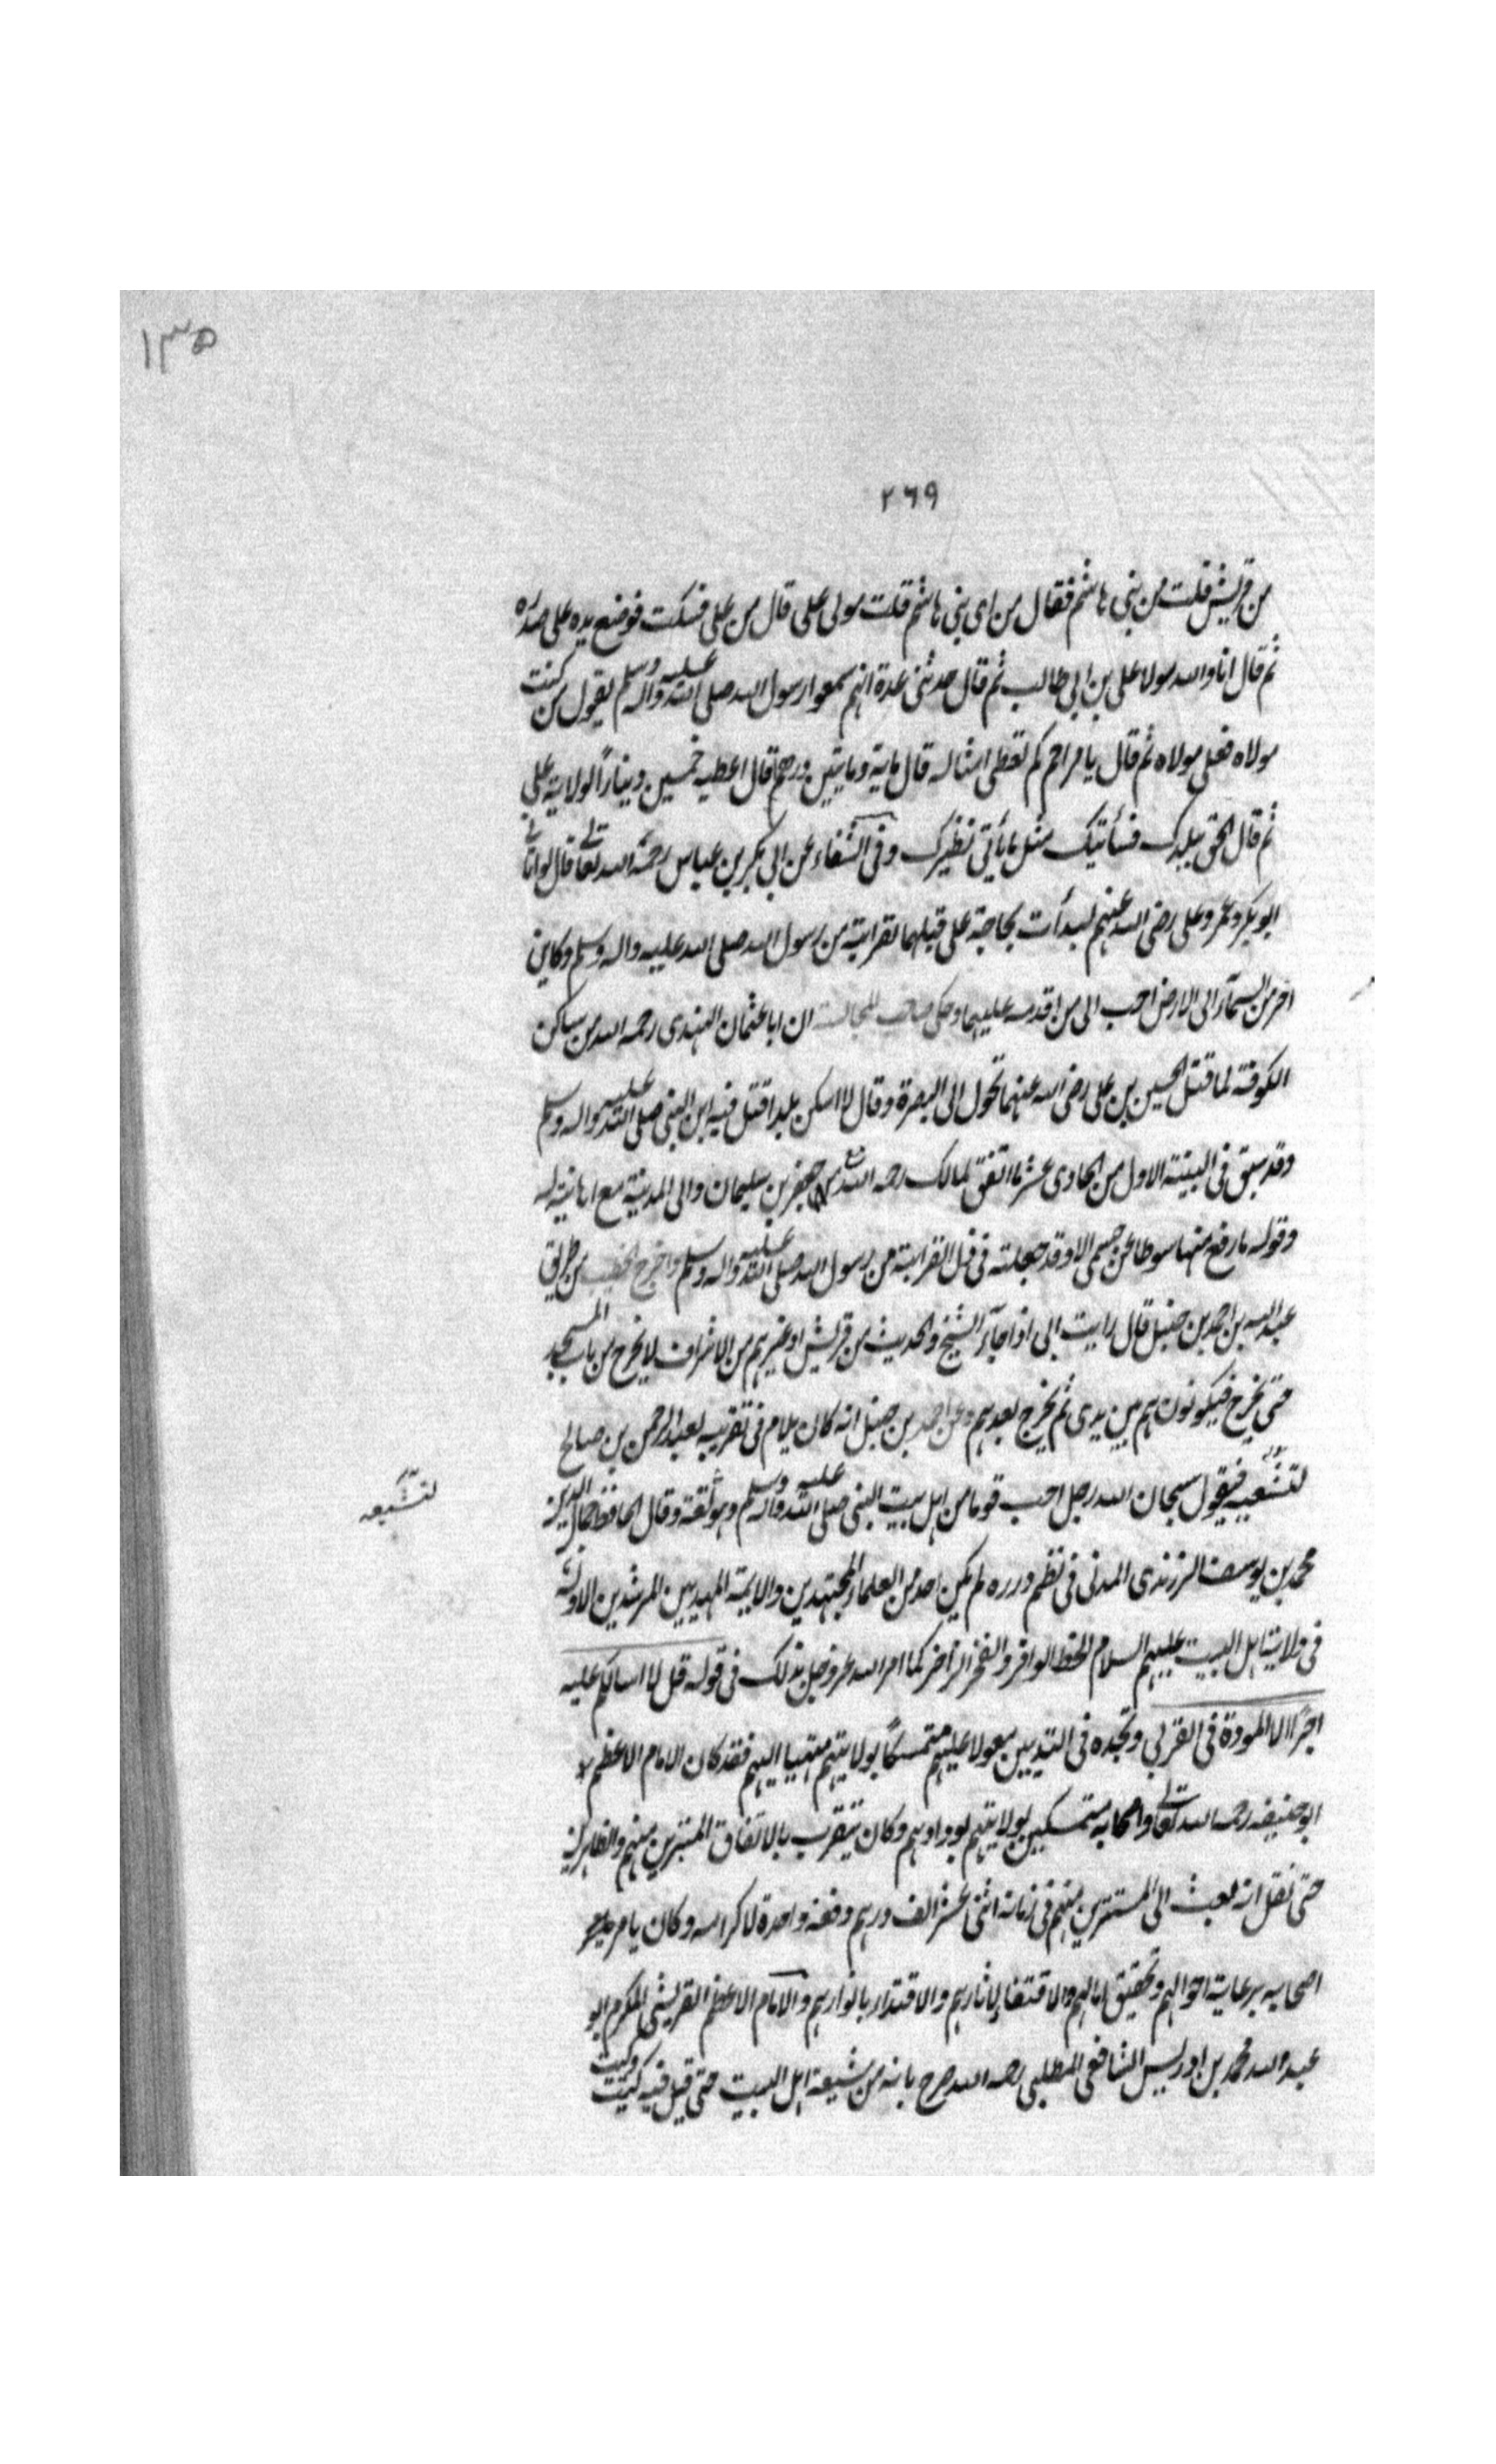 ١٣٥
٢٦٩
من قريش قلت من بنى هاشم فقال من اى بنى هاشم قلت مولى على قال من على فسكت فوضع يده على صدره
ثم قال انا والله مولا على بن ابى طالب ثم قال حدثنى عدة انهم سمعوا رسول الله صلى الله عليه واله وسلم يقول من كنت
مولاه فعلى مولاه ثم قال يا مزاحم كم تعطى امثاله قال ماية ومايتين درهم قال اعطيه خمسين دينارا لولاية على
ثم قال الحق ببلدك فسأتيك مثل ما يأتى نظيرك وفى الشفاء عن ابى بكر بن عياش رحمة الله تعالى قال لو اتانى
ابو بكر وعمر وعلى رضى الله عنهم لبدأت بحاجة على قبلهما لقرابته من رسول الله صلى الله عليه واله وسلم وكاين
اخر من السمآء الى الارض احب الى من اقدمه عليهما وحكى صاحب المجالسة ان ابا عثمان النهدى رحمه الله من ساكن
الكوفة لما قتل الحسين بن على رضى الله عنهما تحول الى البصرة وقال لا اسكن بلدا قتل فيه ابن النبى صلى الله عليه واله وسلم
وقد سبق فى البينة الاول من الحادى عشر ما اتفق لمالك رحمه الله مع جعفر بن سليمان والى المدينة مع اهانيه له
وقوله ما رفع منها سوطا عن جسمى الا وقد جعلته فى حل لقرابته من رسول الله صلى الله عليه واله وسلم واخرج الخطيب من طريق
عبد الله بن احمد بن حنبل قال رايت ابى اذا جآء الشيخ والحديث من قريش او غيرهم من الاشراف لا يخرج من باب المسجد
حتى يخرج فيكونون هم بين يدى ثم يخرج بعدهم وعن احمد بن حنبل انه كان يلام فى تقريبه لعبد الرحمن بن صالح
لتشعيه فيقول سبحان الله رجل احب قوما من اهل بيت النبى صلى الله عليه واله وسلم وهو ثقة وقال الحافظ جمال الدين
لتشيعه
محمد بن يوسف الزرندى المدنى فى نظم درره لم يكن احد من العلماء المجتهدين والايمة المهديين المرشدين الا وله
فى ولاية اهل البيت عليهم السلام الحظ الوافر والفخر الزاخر كما امر الله عز وجل بذلك فى قوله قل لا اسالكم عليه
اجرا الا المودة فى القربى وتجده فى التدين معولا عليهم متمسكا بولايتهم منتميا اليهم فقد كان الامام الاعظم
ابو حنيفه رحمه الله تعالى واصحابه متمسكين بولايتهم بودادهم وكان يتقرب بالانفاق المتسترين منهم والظاهرين
حتى نقل انه بعث الى المتسترين منهم فى زمانه اثنى عشر الف درهم دفعة واحدة لاكرامه وكان يامر
اصحابه برعاية احوالهم وتحقيق امالهم والاقتفاء لاثارهم والاقتداء بانوارهم والامام الاعظم القريشى المكرم ابو
عبد الله محمد بن ادريس الشافعى المطلبى رحمه الله صرح بانه من شيعة اهل البيت حتى قيل فيه كيت وكيت